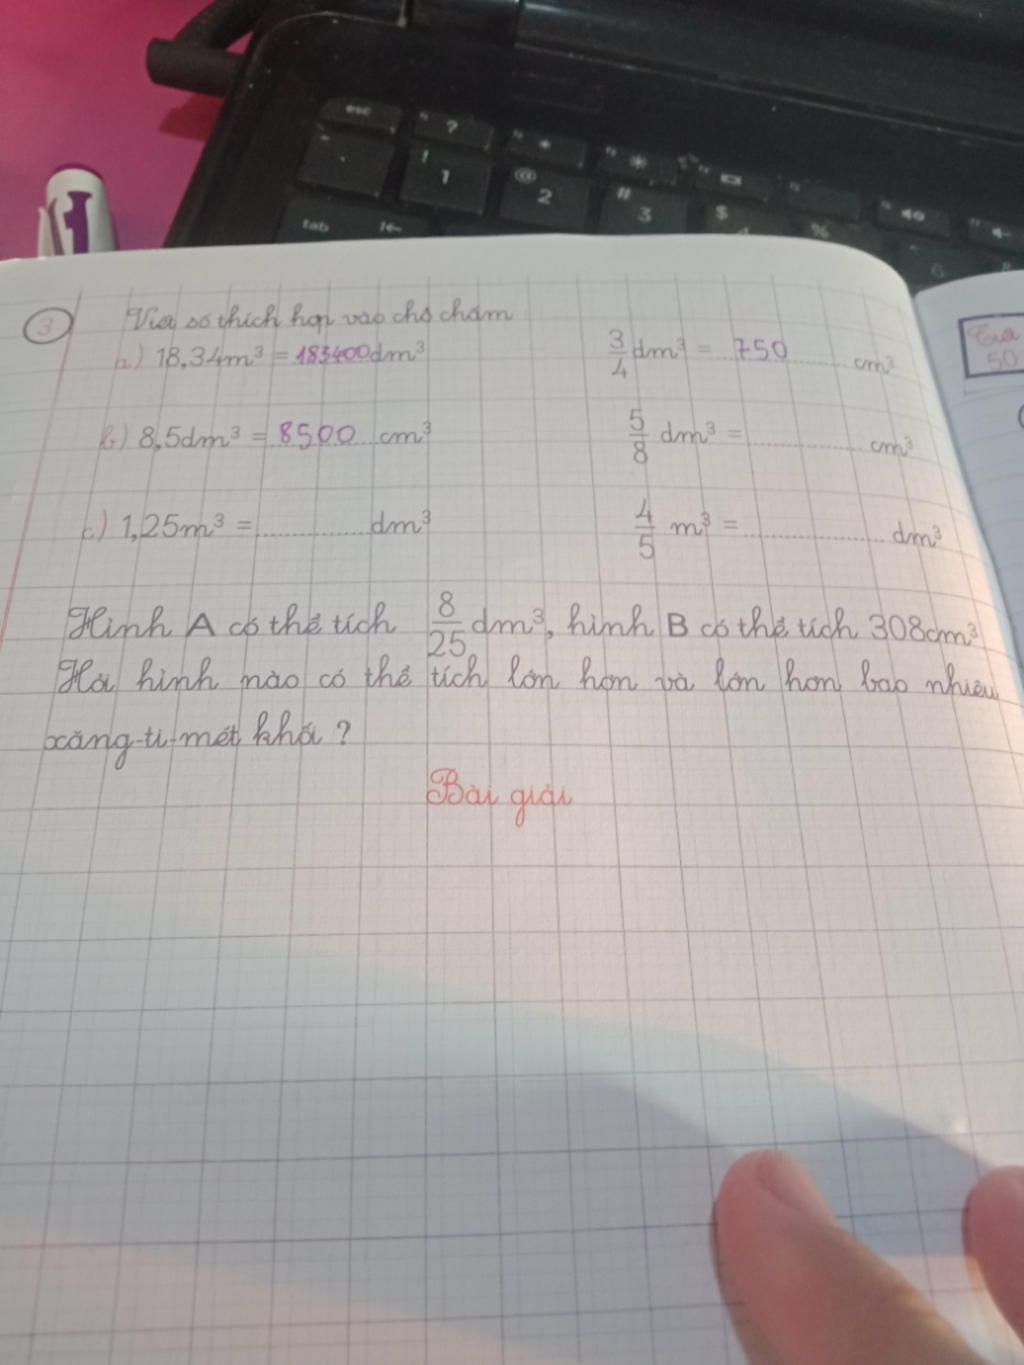 esc
? * *
! 1 @ 2 # 3 $ 4 % 6
tab
3 Viết số thích hợp vào chỗ chấm
a) 18,34m³ = 183400dm³ 3/4 dm³ = 750 cm³
b) 8,5dm³ = 8500 cm³ 5/8 dm³ = ............ cm³
c) 1,25m³ = ............ dm³ 4/5 m³ = ............ dm³
Hình A có thể tích 8/25 dm³, hình B có thể tích 308cm³
Hỏi hình nào có thể tích lớn hơn và lớn hơn bao nhiêu
xăng-ti-mét khối ?
Bài giải
50